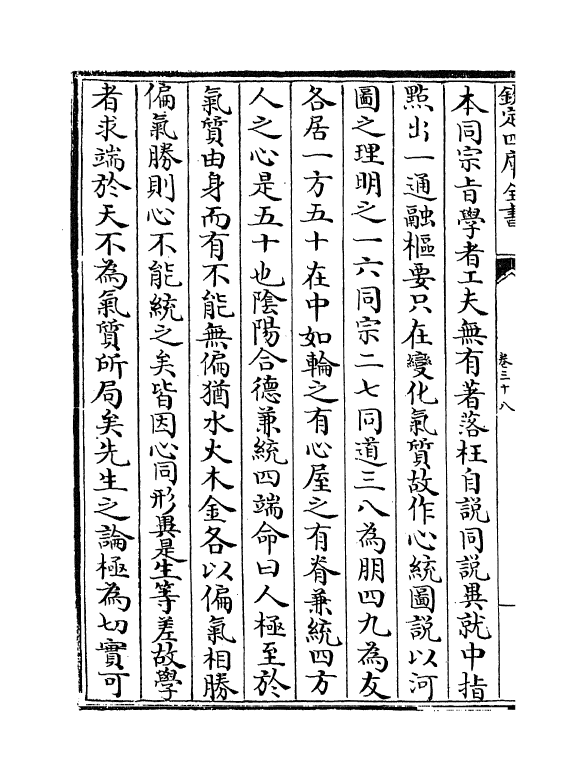 欽定四庫全書
卷三十八
本同宗㫖學者工夫無有著落枉自説同説異就中指
㸃出一通融樞要只在變化氣質故作心統圖説以河
圖之理明之一六同宗二七同道三八為朋四九為友
各居一方五十在中如輪之有心屋之有脊兼統四方
人之心是五十也陰陽合德兼統四端命曰人極至於
氣質由身而有不能無偏猶水火木金各以偏氣相勝
偏氣勝則心不能統之矣皆因心同形異是生等差故學
者求端於天不為氣質所局矣先生之論極為切實可